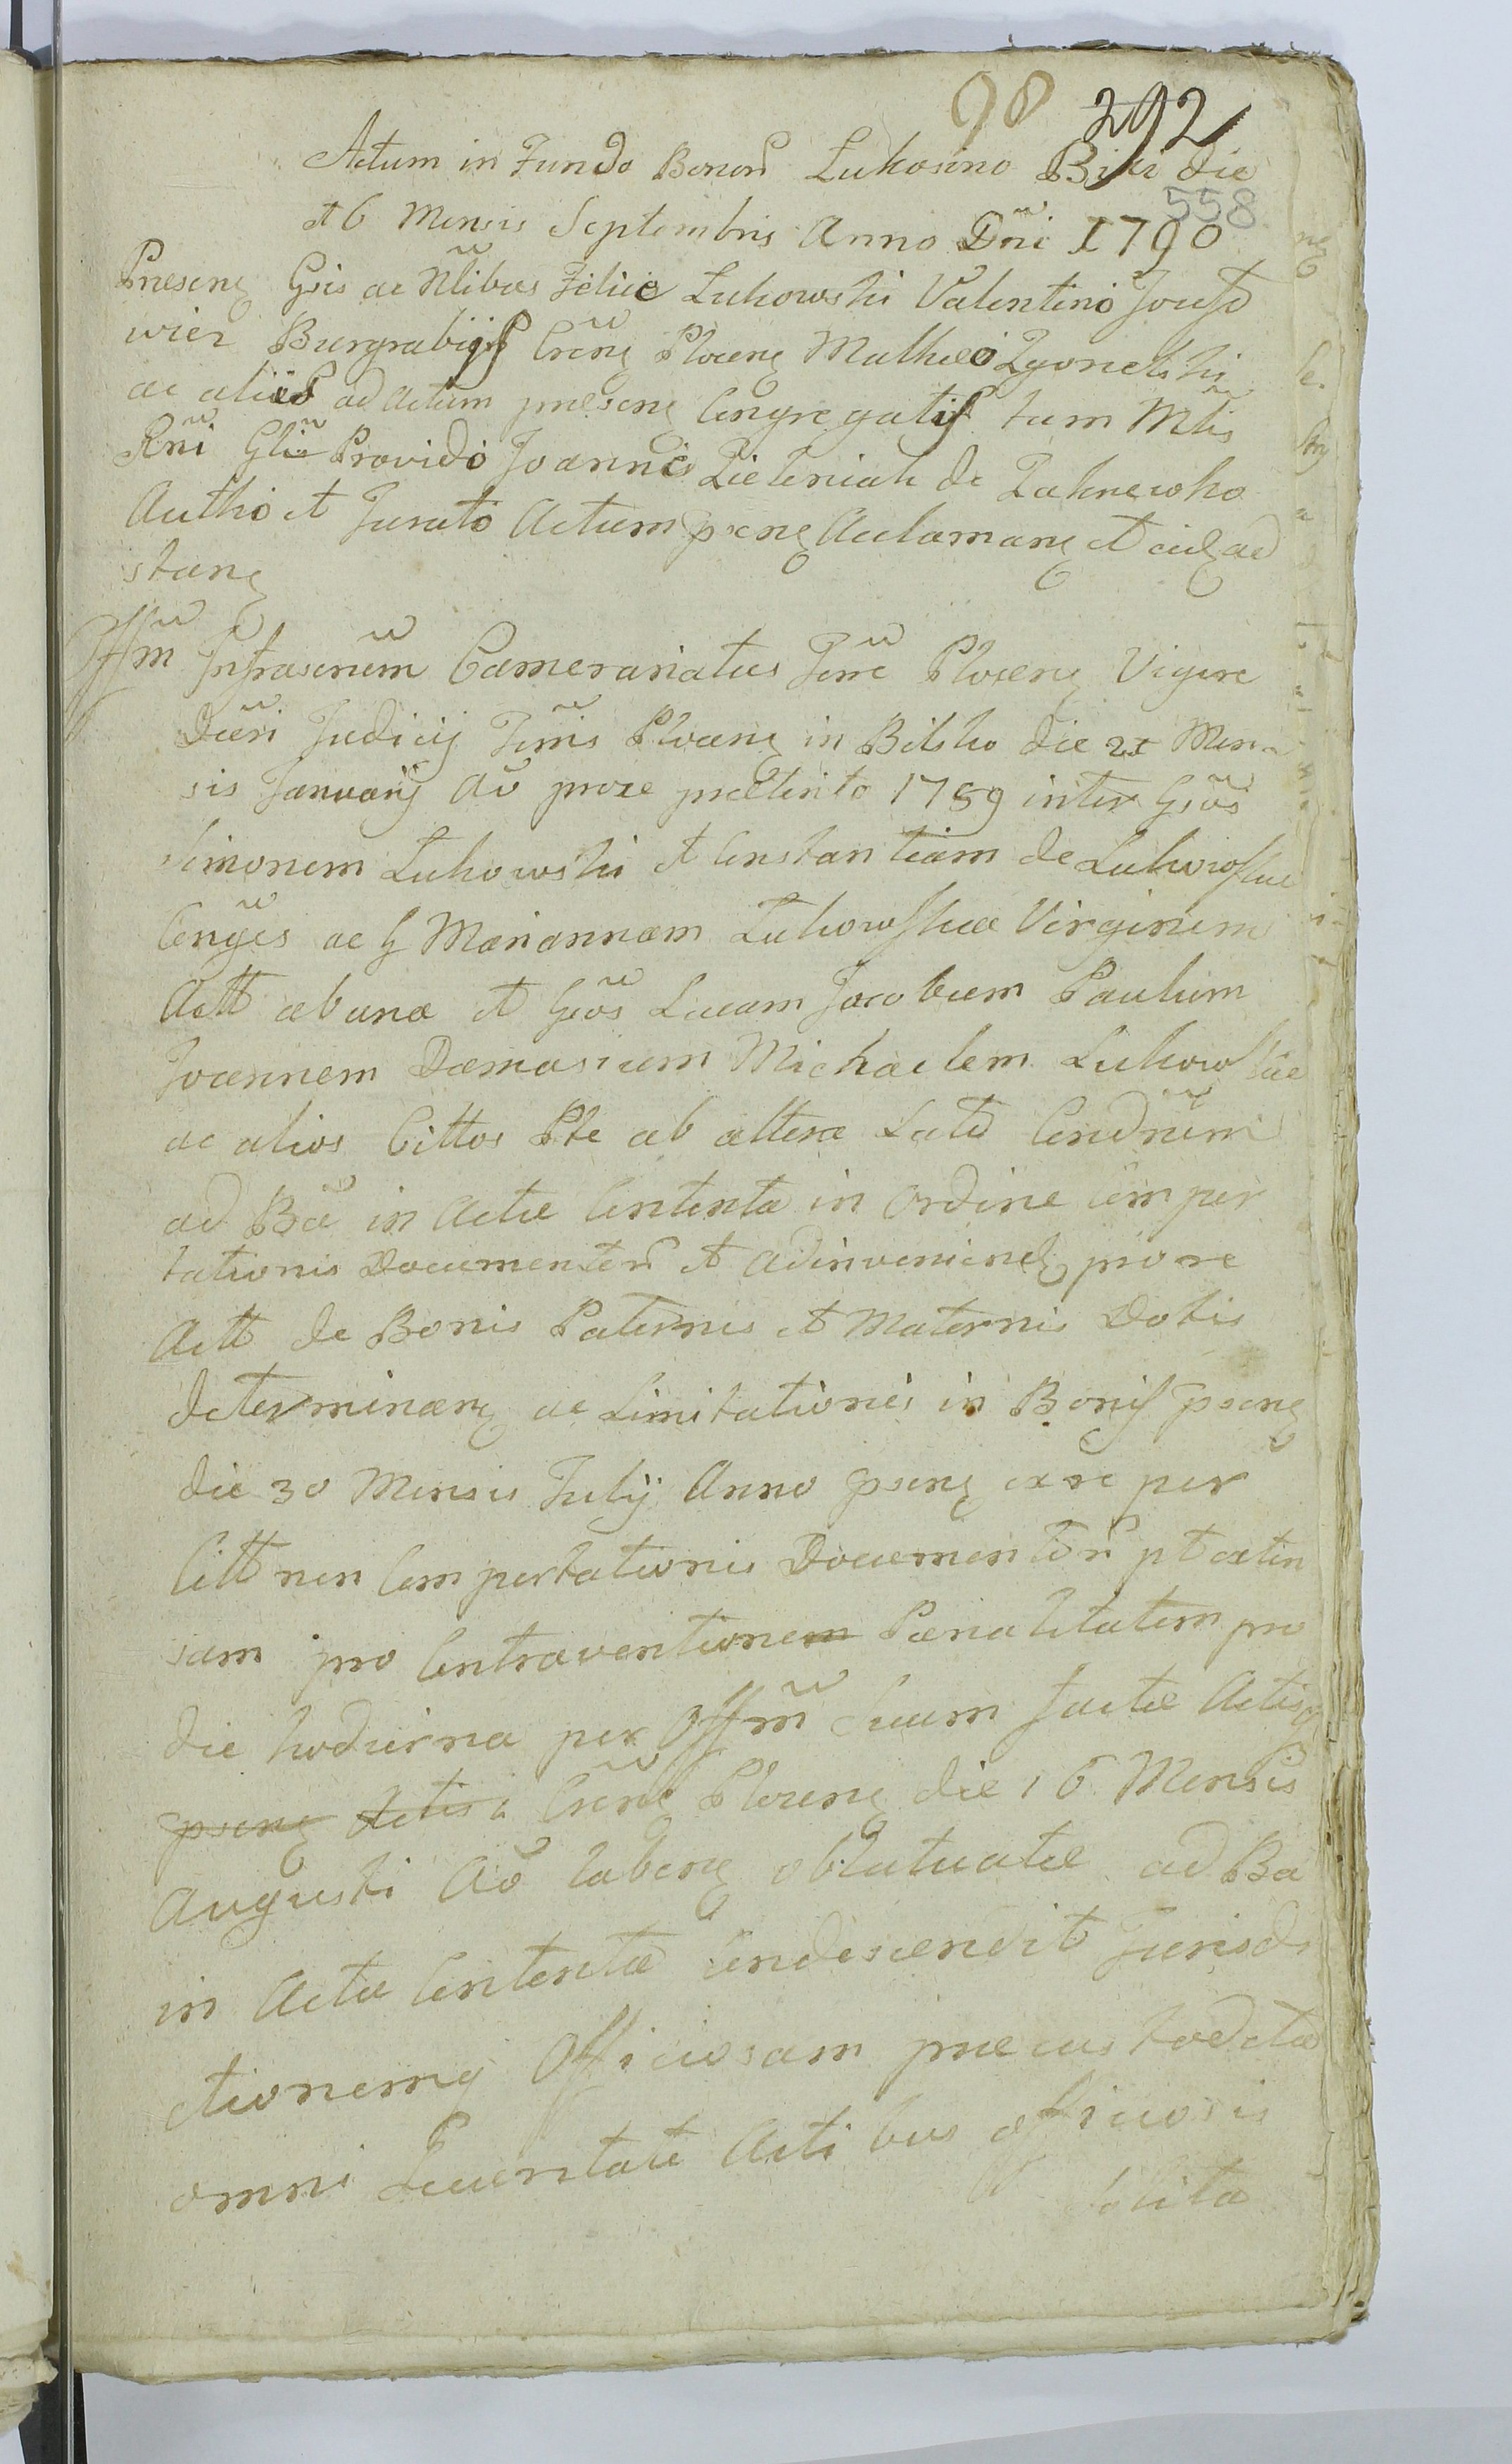 98 292
558
Actum in Fundo Bonorũ Lukosino Biki die
16 Mensis Septembris Anno Dñi 1790
Praesenę Gsis ac Nlibus Felice Lukowski Valentino
wicz Burgrabijs Crenę Plocenę Matheo Zgonelski
ac alijs ad Actum praesenę Congregatis tum Mtis
Rñi Glis Provido Joanne Zieleniak de Zakrewko
Autho et Jurato Actum psenę Acclamanę et eidę ad
stanę
Offm Infrascrnẽm Camerariatus Terrẽ Plocenę Vigore
Dcẽri Judicij Trnĩs Plocenę in Bilsko die 21 Men-
sis Januarij Aõ proxe praeterito 1789 inter Gsõs
Simonem Lukowski et Constantiam de Lukowskie
Conges ac G Mariannam Lukowska Virginem
Actt ab una et Gsõs Lucam Jacobum Paulum
Joannem Damasium Michaelem Lukowskie
ac alios Cittos Pte ab altera Lato Condnẽm
ad Ba in Actu Contenta in Ordine Compor
tationis Documentorũ et Adinveniendę pro re
Actt de Bonis Paternis et Maternis Dotis
determinanę ac Limitationis in Bonis psenę
die 30 Mensis Julij Anno psenę ex re per
Citt non Comportationis Documentorũ pt extin
sam pro Contraventionem Paenalitatem pro
die hodierna per Offm Suum facta Actisq
psenę Actis Crenę Plocenę die 16 Mensis
Augusti Aõ labenę oblatuata ad Ba
in Actu Contenta Condescendit Jurisdi
ctionemq Officiosam praecustodita
omni Securitate Actibus officiosis
solita